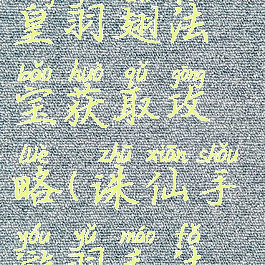 羽翅法
bǎo huò qǔ gōng
宝获取攻
lüè zhū xiān shǒu
略(诛仙手
yóu yǔ máo fǎ